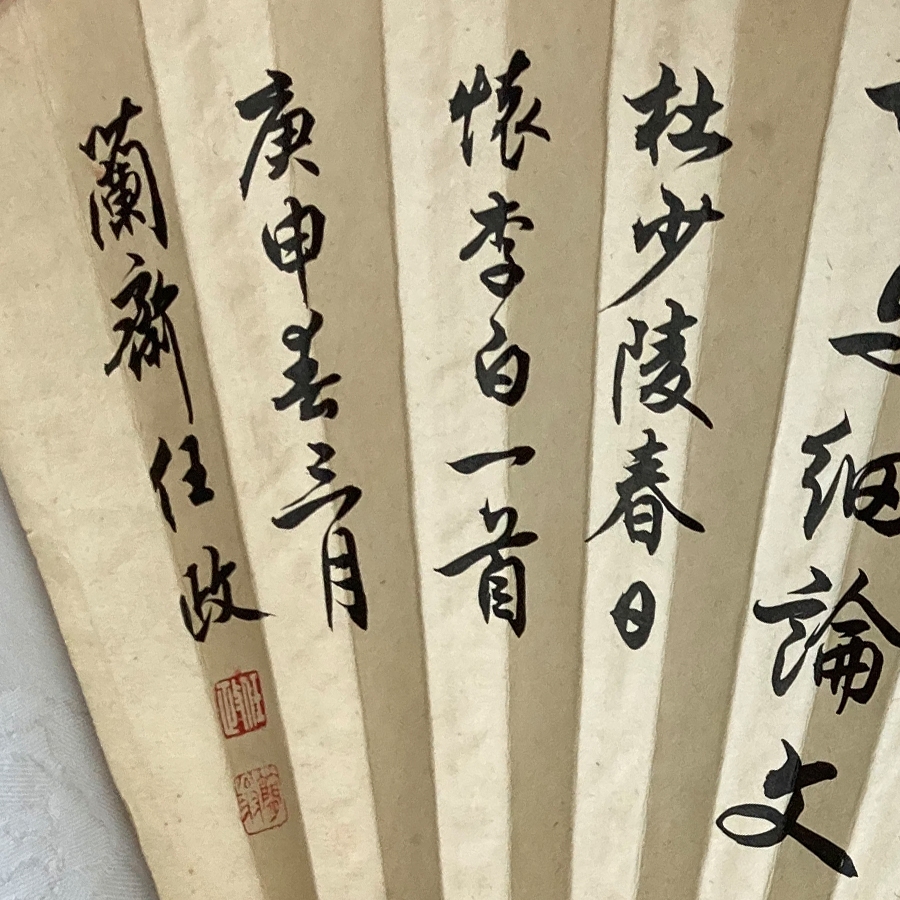 与細論文
杜少陵春日
懷李白一首
庚申春三月
蘭齋任政
任政